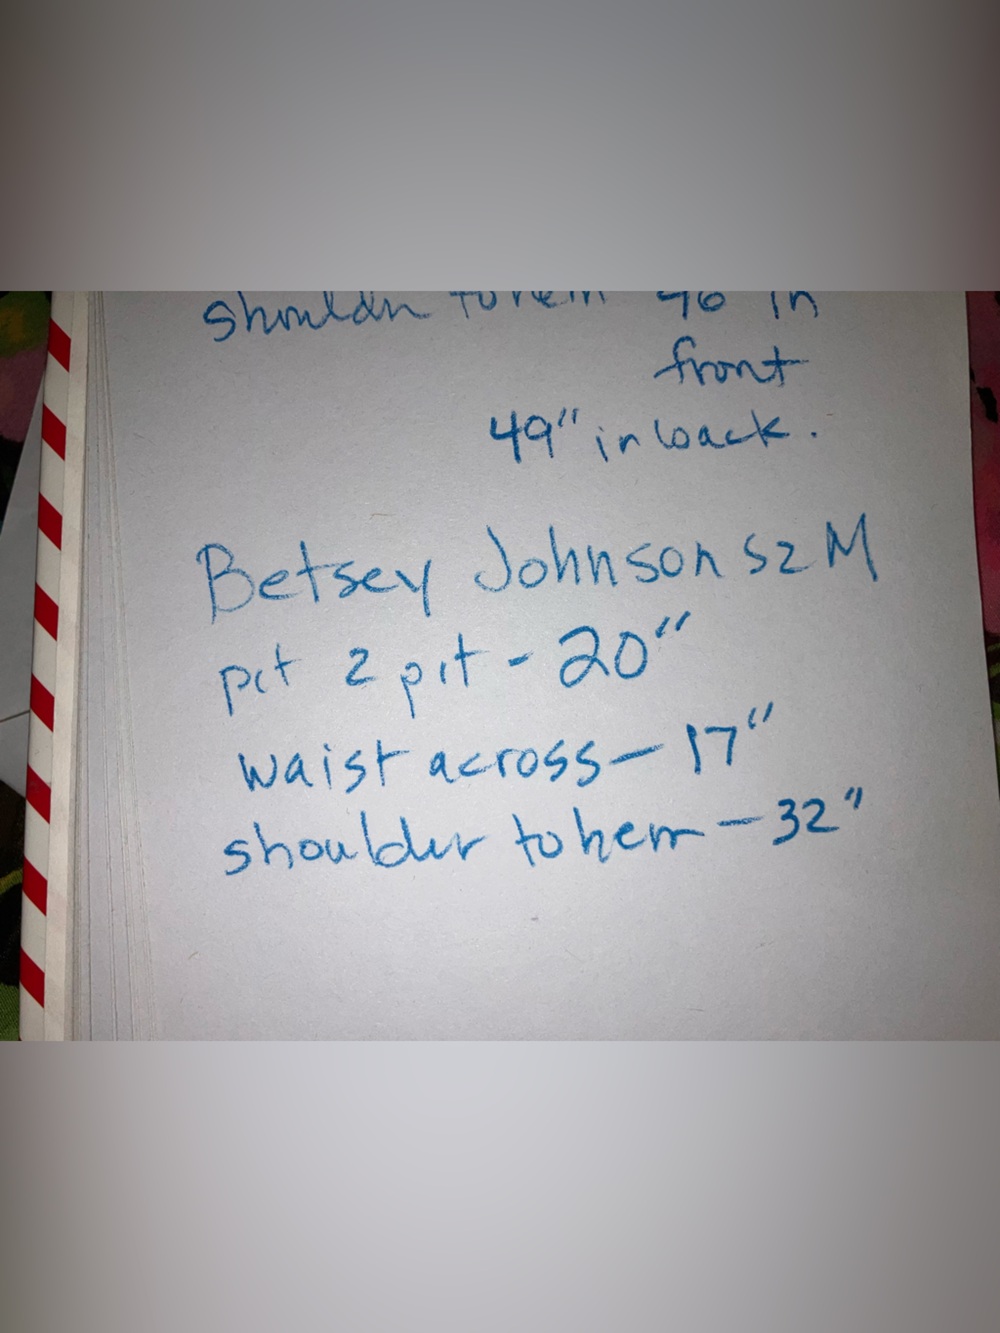 shoulder to hem 46 in
front
49" in back.
Betsey Johnson sz M
pit 2 pit - 20"
waist across - 17"
shoulder to hem - 32"